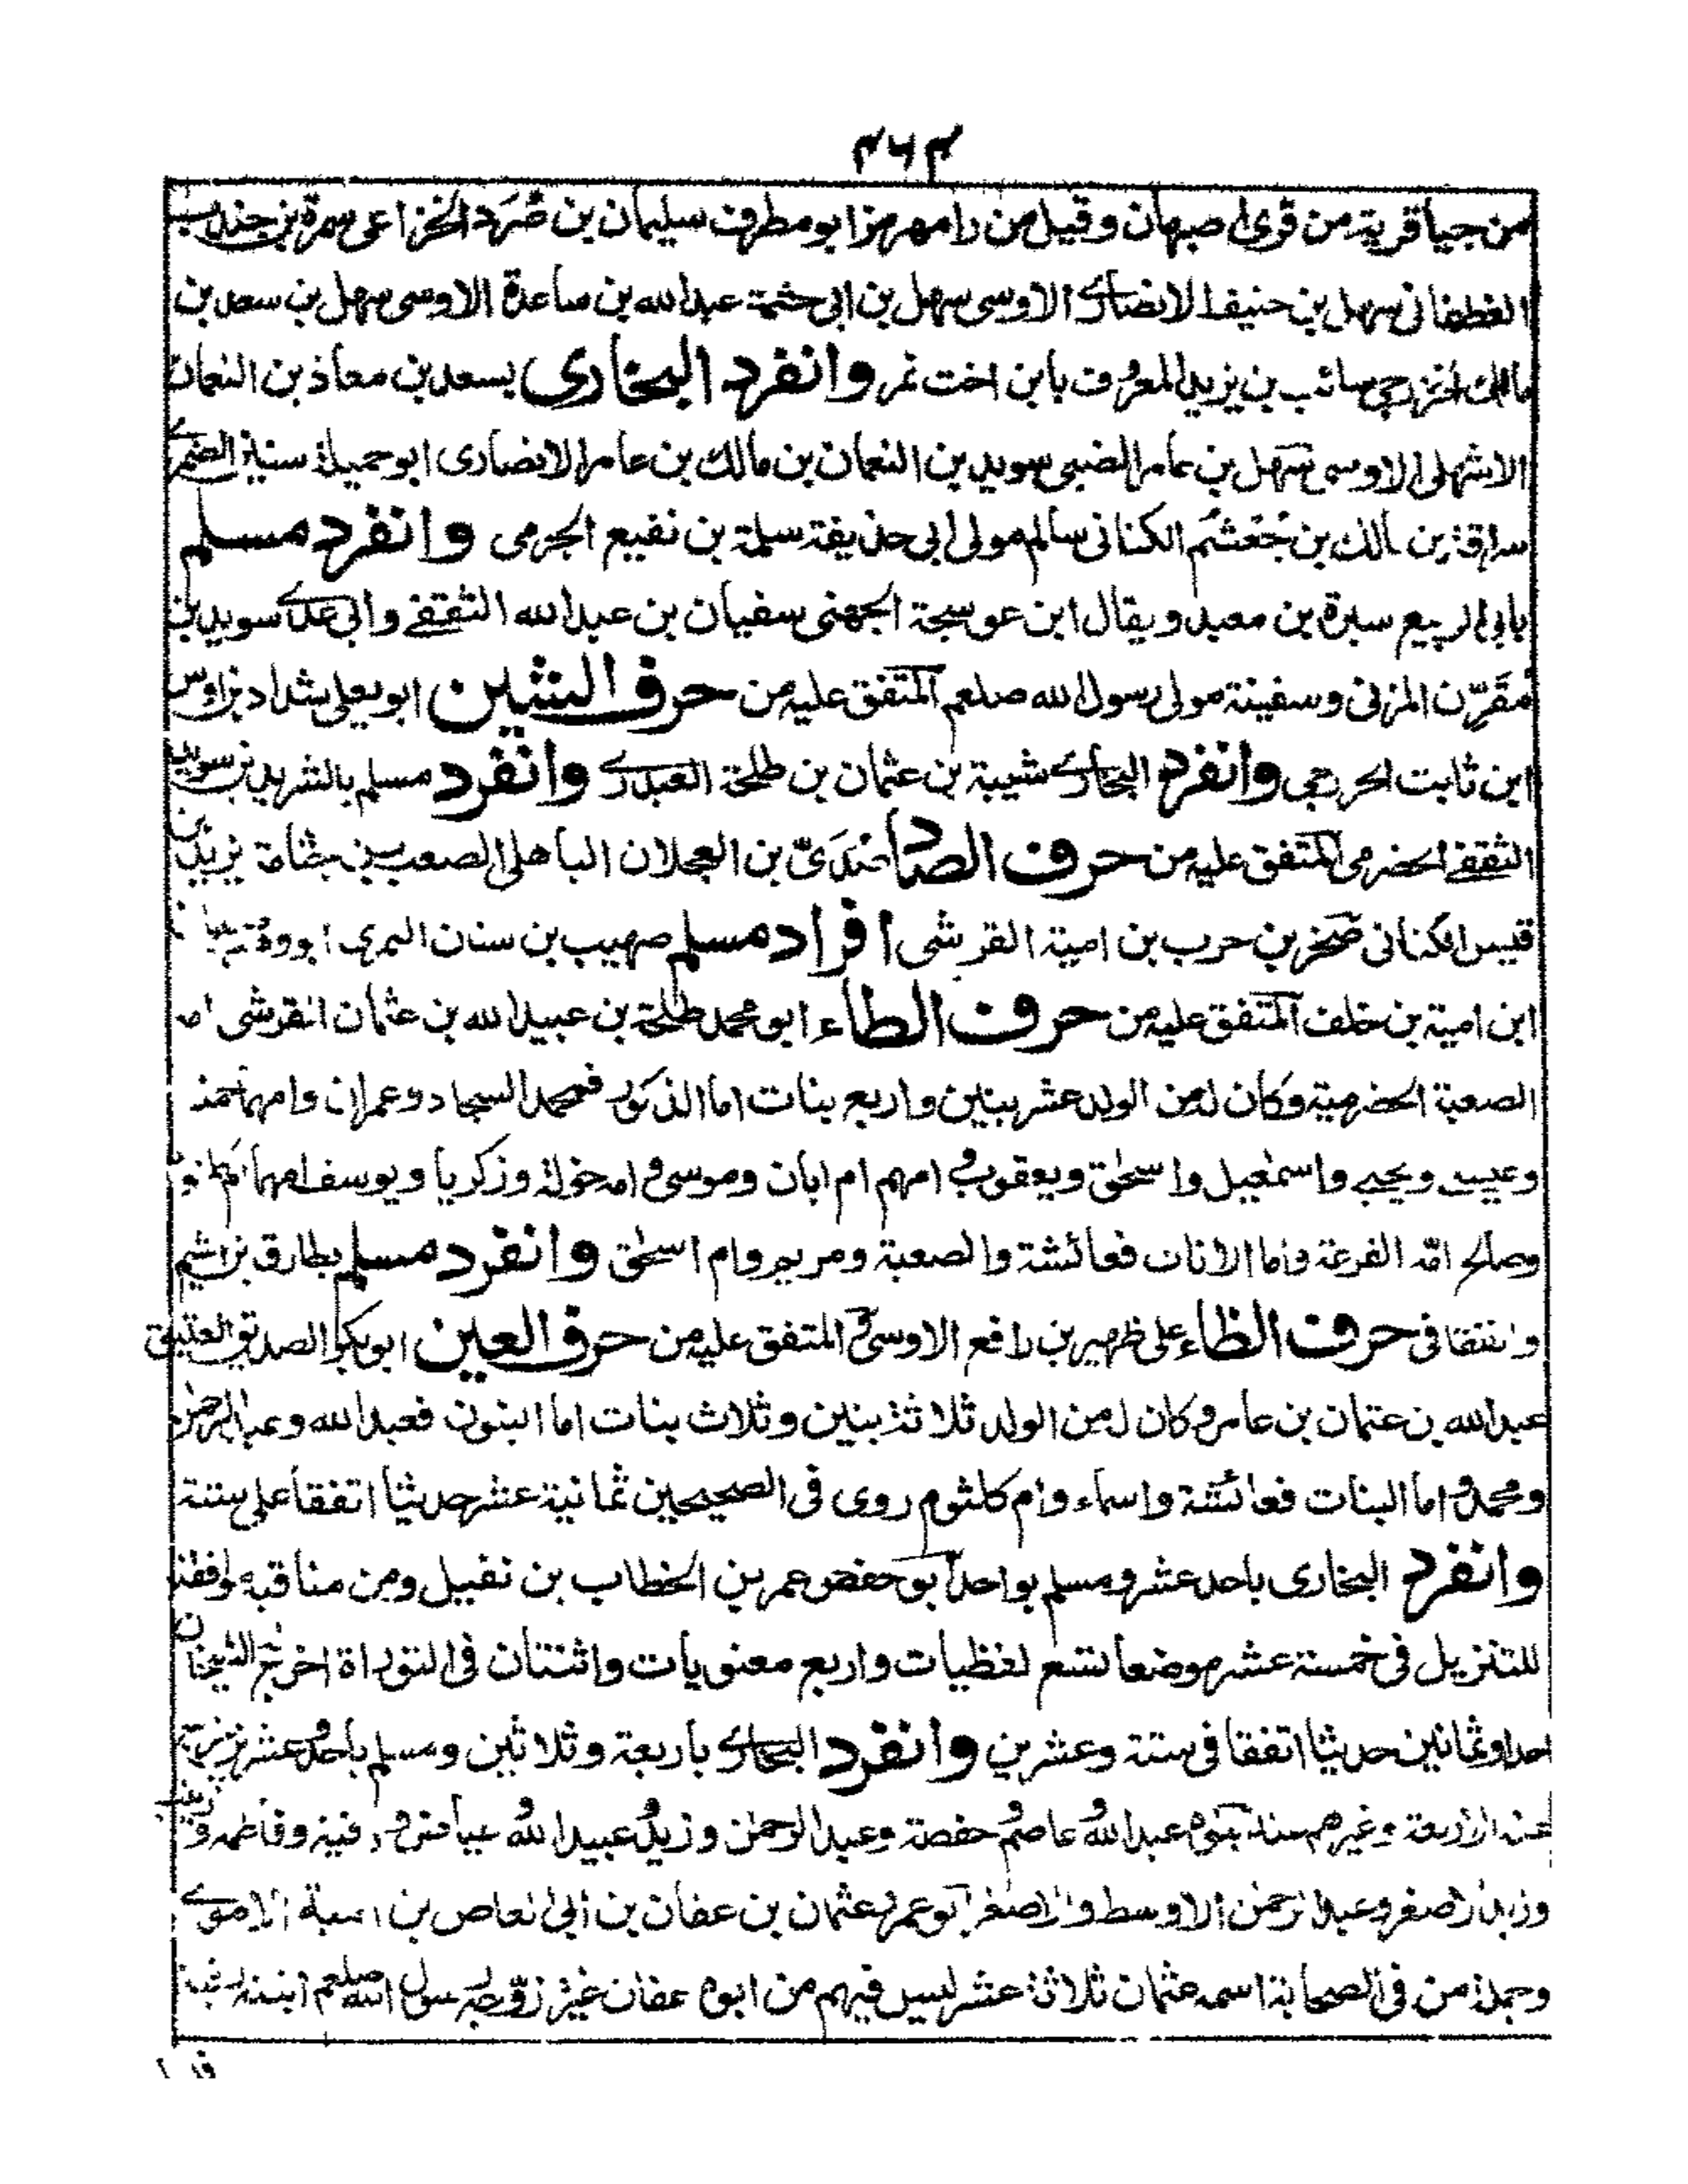 ٣٦٣
من جيا قرية من قرى اصبهان وقيل من رامهرمز ابو مطرف سليمان بن صُرَد الخزاعى سمرة بن جندب
الغطفانى سهل بن حنيف الانصارى الاوسى سهل بن ابى حثمة عبدالله بن ساعدة الاوسى سهل بن سعد بن
مالك الخزرجى سائب بن يزيد المعروف بابن اخت نمر وانفرد البخارى بسعد بن معاذ بن النعمان
الاشهلى الاوسى سهل بن عامر الضبى سويد بن النعمان بن مالك بن عامر الانصارى ابو جميلة سنين الضمرى
سراقة بن مالك بن جُعْشُم الكنانى سالم مولى ابى حذيفة سلمة بن نفيع الجرمى وانفرد مسلم
بابى الربيع سبرة بن معبد ويقال ابن عوسجة الجهنى سفيان بن عبدالله الثقفى وابى عدى سويد بن
مُقَرِّن المزنى وسفينة مولى رسول الله صلعم المتفق عليه من حرف الشين ابو يعلى شداد بن اوس
ابن ثابت الخرزجى وانفرد البخارى شيبة بن عثمان بن طلحة العبدرى وانفرد مسلم بالشريد بن سويد
الثقفى الحضرمى المتفق عليه من حرف الصاد صُدَىّ بن العجلان الباهلى الصعب بن جثامة يزيد بن
قيس الكنانى صخر بن حرب بن امية القرشى افراد مسلم صهيب بن سنان النمرى ابو وهب
ابن امية بن خلف المتفق عليه من حرف الطاء ابو محمد طلحة بن عبيدالله بن عثمان القرشى امه
الصعبة الحضرمية وكان له من الولد عشر بنين واربع بنات اما الذكور فمحمد السجاد وعمران وامهما حمنة
وعيسى ويحيى واسمعيل واسحق ويعقوب وامهم ام ابان وموسى وامه خولة وزكريا ويوسف امهما ام كلثوم
وصالح امّه الفرعة واما الاناث فعائشة والصعبة ومريم وام اسحق وانفرد مسلم بطارق بن اشيم
واتفقا فى حرف الظاء على ظهير بن رافع الاوسى المتفق عليه من حرف العين ابو بكر الصديق العتيق
عبدالله بن عثمان بن عامر وكان له من الولد ثلاثة بنين وثلاث بنات اما البنون فعبدالله وعبدالرحمن
ومحمد واما البنات فعائشة واسماء وام كلثوم روى فى الصحيحين ثمانية عشر حديثا اتفقا على ستة
وانفرد البخارى باحد عشر ومسلم بواحد ابو حفص عمر بن الخطاب بن نفيل ومن مناقبه موافقته
للتنزيل فى خمسة عشر موضعا تسع لفظيات واربع معنويات واثنتان فى التوراة اخرج الشيخان
احدا وثمانين حديثا اتفقا فى ستة وعشرين وانفرد البخارى باربعة وثلاثين ومسلم باحد وعشرين
عنه الاربعة وغيرهم بنوه عبدالله وعاصم وحفصة وعبدالرحمن وزيد وعبيدالله وعياض ورقية وفاطمة وزينب
وزيد الاصغر وعبدالرحمن الاوسط والاصغر ابو عمرو عثمان بن عفان بن ابى العاص بن امية الاموى
وجملة من فى الصحابة اسمه عثمان ثلاثة عشر ليس فيهم من ابوه عفان غيره زوّجه رسول الله صلعم ابنته رقية